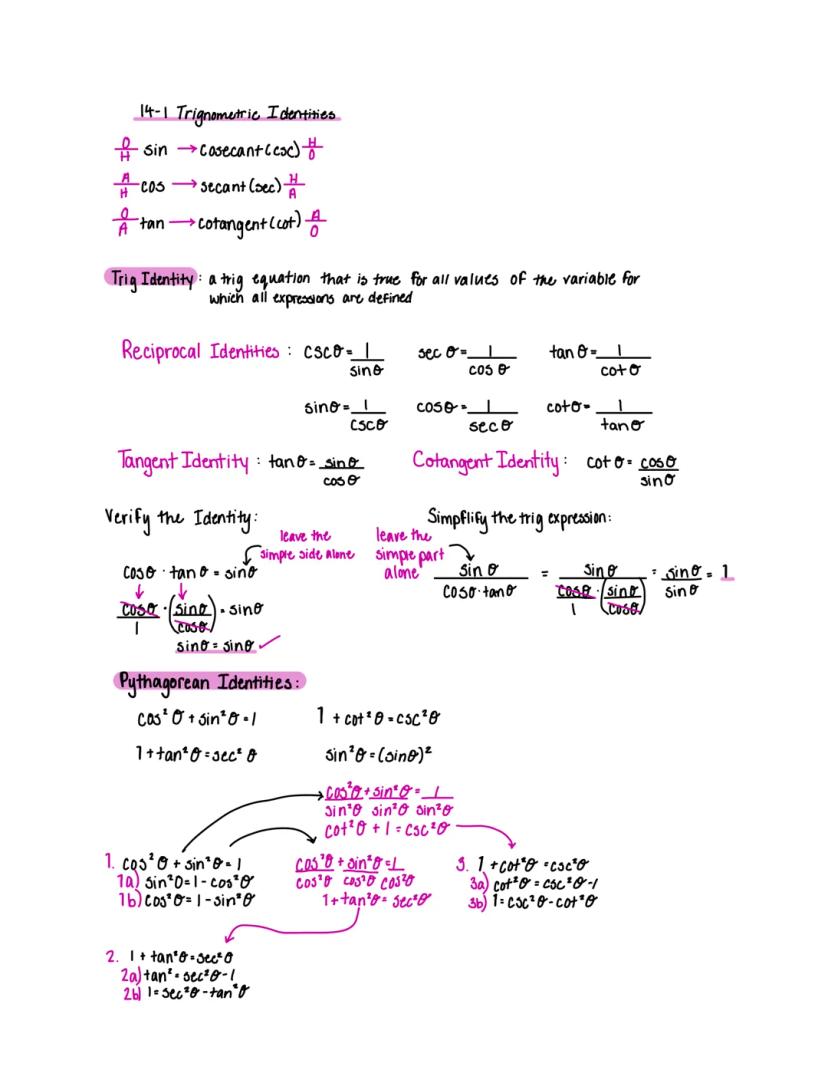 14-1 Trignometric Identities
O/H sin → cosecant (csc) H/O
A/H cos → secant (sec) H/A
O/A tan → cotangent (cot) A/O
Trig Identity: a trig equation that is true for all values of the variable for
which all expressions are defined
Reciprocal Identities: cscθ = 1/sinθ sec θ = 1/cos θ tan θ = 1/cot θ
sinθ = 1/cscθ cosθ = 1/sec θ cotθ = 1/tanθ
Tangent Identity: tanθ = sinθ/cosθ Cotangent Identity: cot θ = cosθ/sinθ
Verify the Identity: Simpflify the trig expression:
leave the
simple side alone
leave the
simple part
alone
cosθ · tan θ = sinθ
cosθ/1 · (sinθ/cosθ) = sinθ
sinθ = sinθ ✓
sin θ/cosθ·tanθ = sinθ/(cosθ/1 · (sinθ/cosθ)) = sinθ/sinθ = 1
Pythagorean Identities:
cos² θ + sin²θ = 1 1 + cot²θ = csc²θ
1 + tan²θ = sec² θ sin²θ = (sinθ)²
cos²θ/sin²θ + sin²θ/sin²θ = 1/sin²θ
cot²θ + 1 = csc²θ
1. cos²θ + sin²θ = 1
1a) sin²θ = 1 - cos²θ
1b) cos²θ = 1 - sin²θ
cos²θ/cos²θ + sin²θ/cos²θ = 1/cos²θ
1 + tan²θ = sec²θ
3. 1 + cot²θ = csc²θ
3a) cot²θ = csc²θ - 1
3b) 1 = csc²θ - cot²θ
2. 1 + tan²θ = sec²θ
2a) tan² = sec²θ - 1
2b) 1 = sec²θ - tan²θ